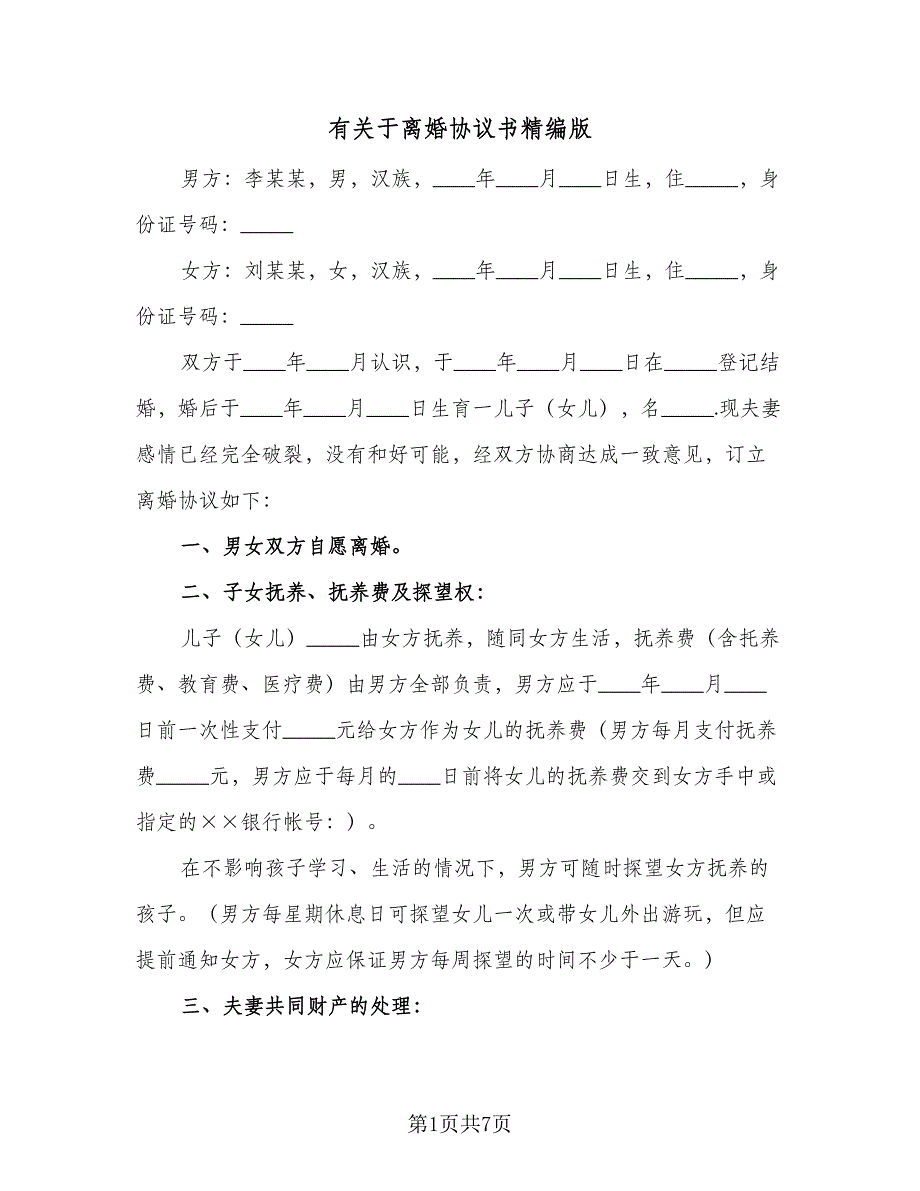 有关于离婚协议书精编版
男方：李某某，男，汉族，____年____月____日生，住_____，身
份证号码：_____
女方：刘某某，女，汉族，____年____月____日生，住_____，身
份证号码：_____
双方于____年____月认识，于____年____月____日在_____登记结
婚，婚后于____年____月____日生育一儿子（女儿），名_____.现夫妻
感情已经完全破裂，没有和好可能，经双方协商达成一致意见，订立
离婚协议如下：
一、男女双方自愿离婚。
二、子女抚养、抚养费及探望权：
儿子（女儿）_____由女方抚养，随同女方生活，抚养费（含托养
费、教育费、医疗费）由男方全部负责，男方应于____年____月____
日前一次性支付_____元给女方作为女儿的抚养费（男方每月支付抚养
费_____元，男方应于每月的____日前将女儿的抚养费交到女方手中或
指定的××银行帐号：）。
在不影响孩子学习、生活的情况下，男方可随时探望女方抚养的
孩子。（男方每星期休息日可探望女儿一次或带女儿外出游玩，但应
提前通知女方，女方应保证男方每周探望的时间不少于一天。）
三、夫妻共同财产的处理：
第1页共7页